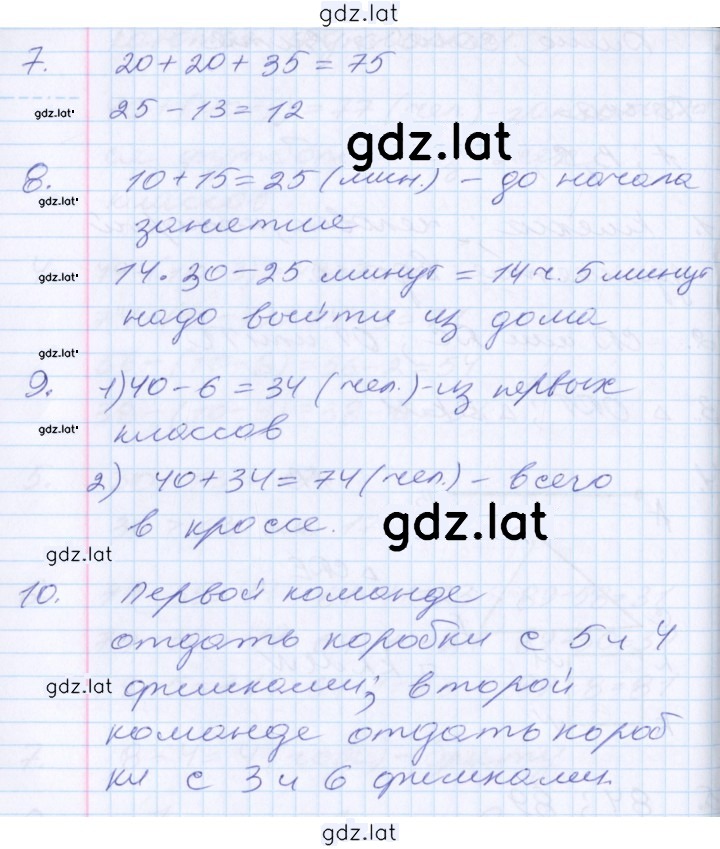 gdz.lat
7. 20 + 20 + 35 = 75
gdz.lat
25 - 13 = 12
gdz.lat
8. 10 + 15 = 25 (мин.) - до начала
gdz.lat
занятия
gdz.lat
14.30 - 25 минут = 14 ч. 5 минут
надо выйти из дома
gdz.lat
9. 1) 40 - 6 = 34 (чел.) - из первых
gdz.lat
классов
2) 40 + 34 = 74 (чел.) - всего
gdz.lat
в кроссе.
gdz.lat
10. Первой команде
отдать коробки с 5 и 4
gdz.lat
фишками; второй
команде отдать короб
ки с 3 и 6 фишками.
gdz.lat